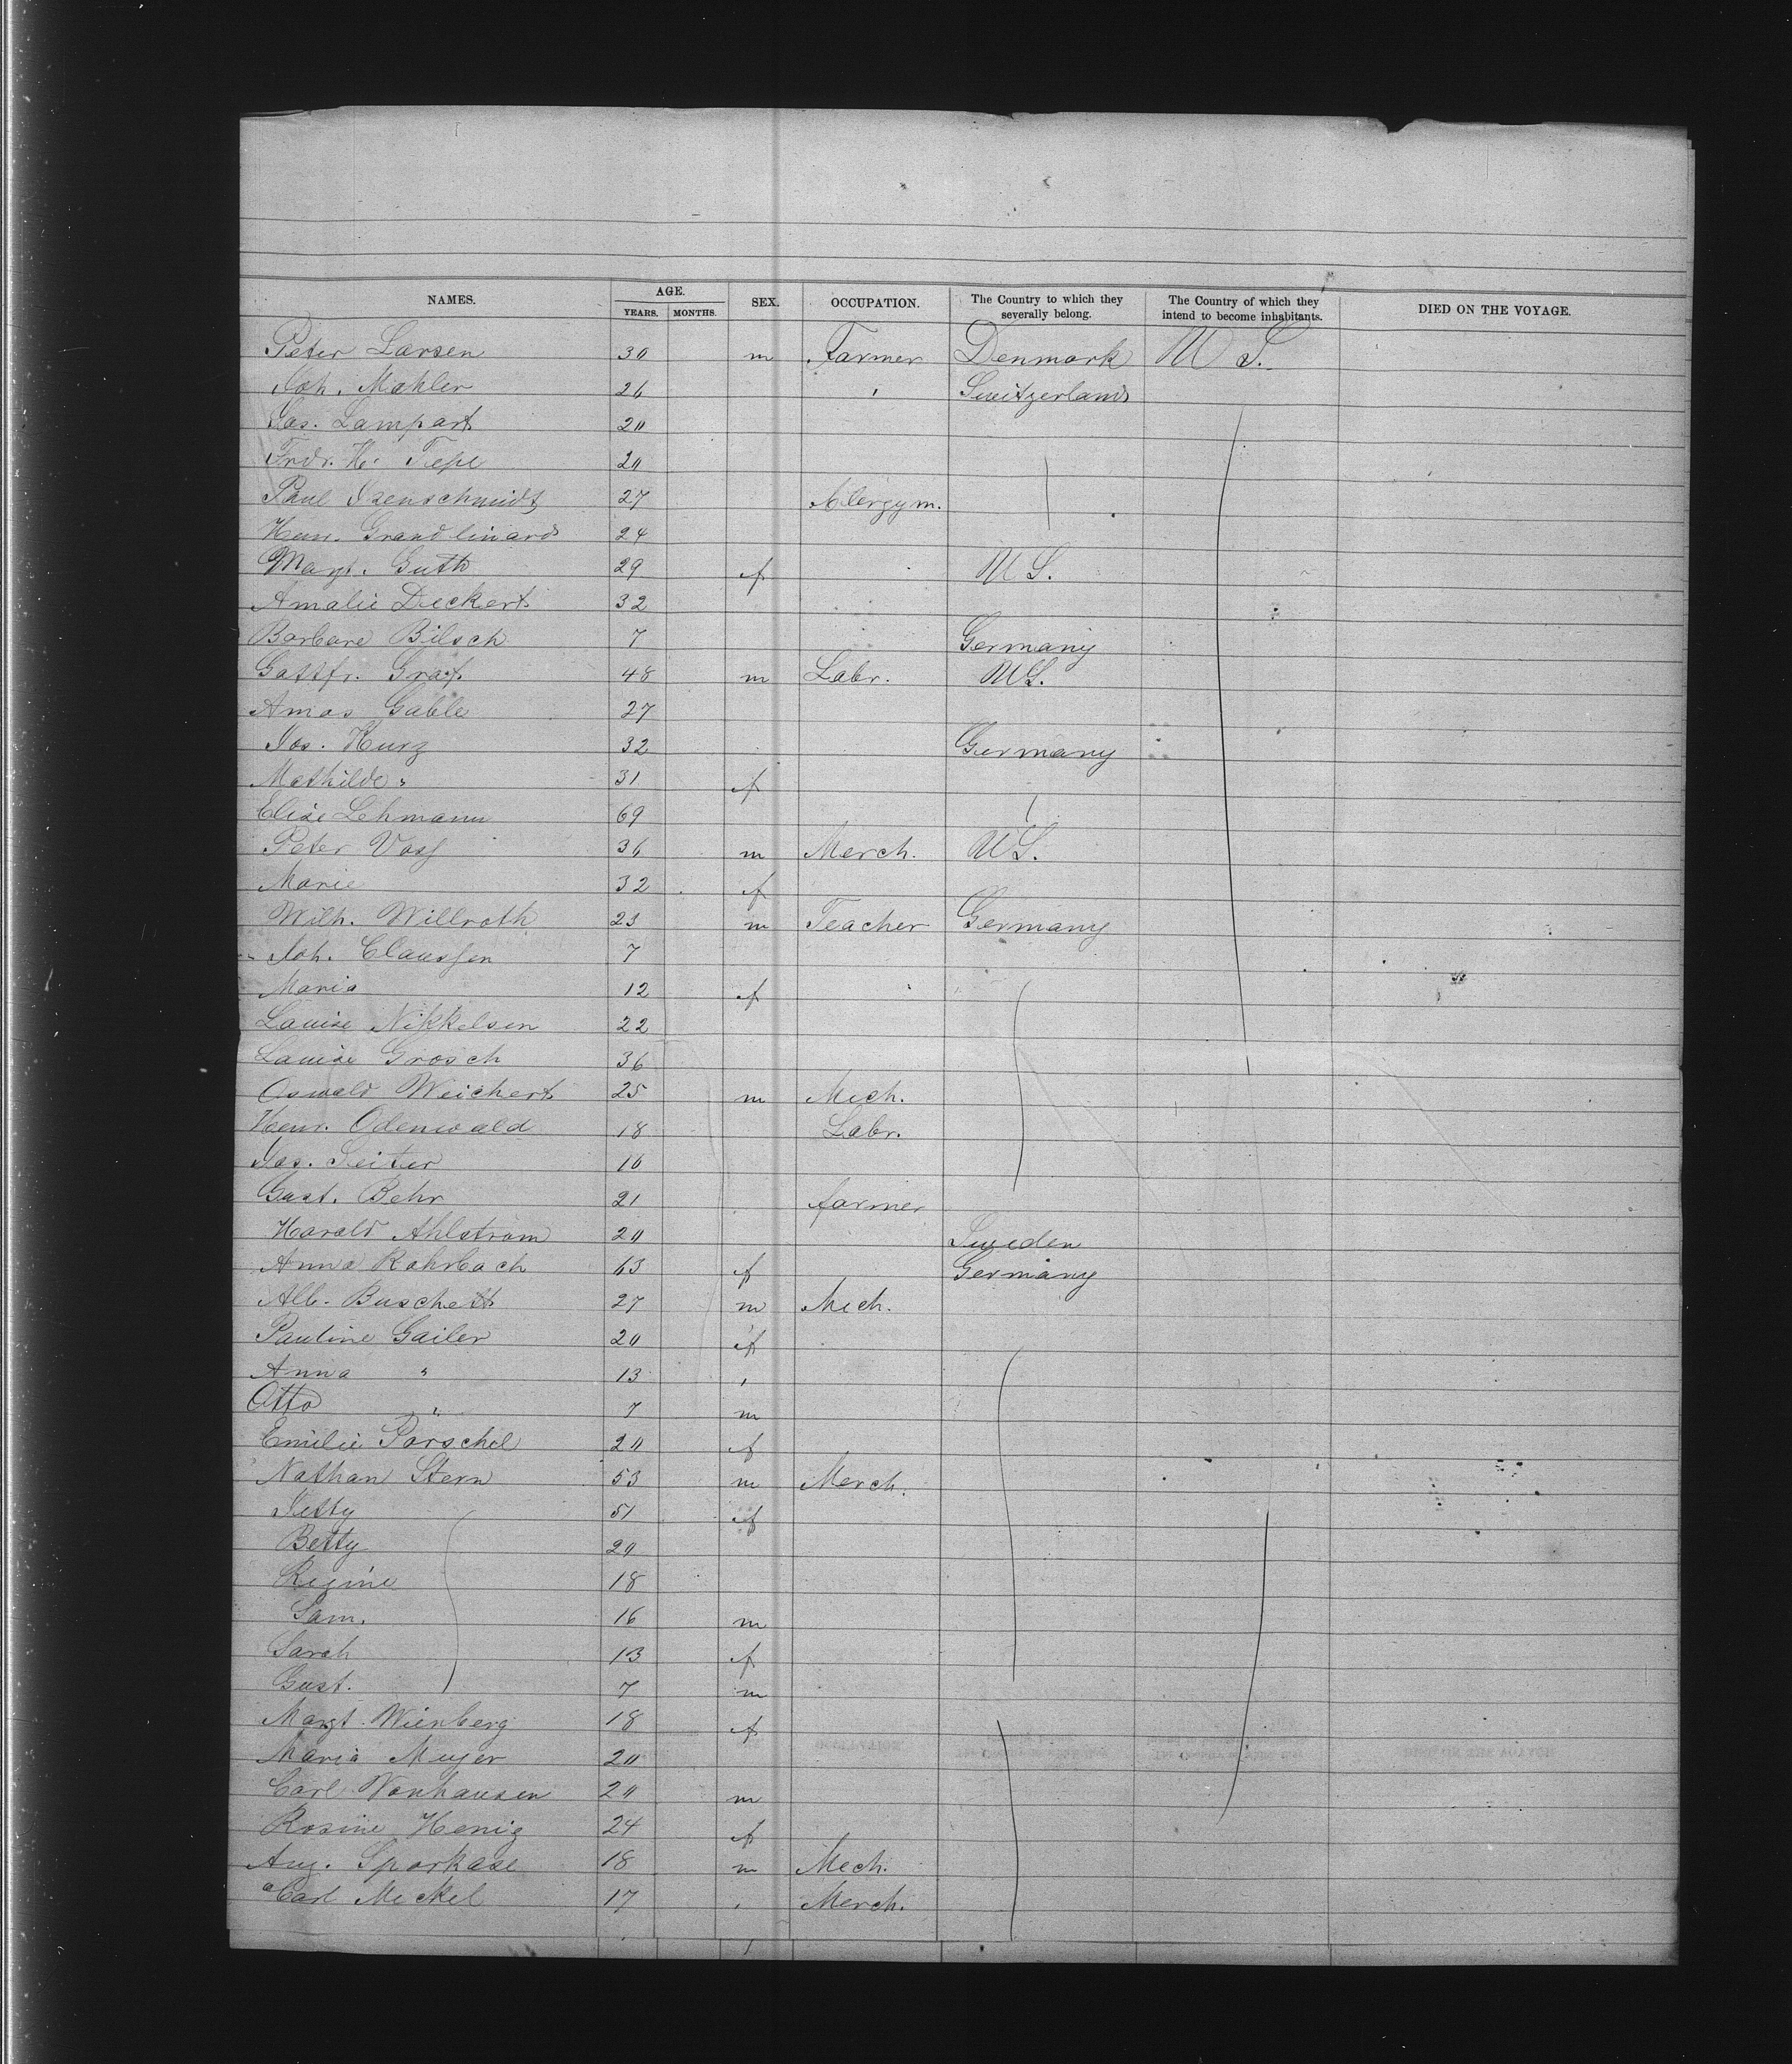 NAMES. AGE. YEARS. MONTHS. SEX. OCCUPATION. The Country to which they severally belong. The Country of which they intend to become inhabitants. DIED ON THE VOYAGE.
Peter Larsen 30 m Farmer Denmark U S.
Joh. Mahler 26 ' Switzerland
Jos. Lampart 20
Frdr. H. Tepe 20
Paul Isenschmidt 27 Clergym.
Henr. Grandlinard 24
Margt. Guth 29 f U S.
Amalie Deckert 32
Barbara Bilsch 7 Germany
Gottfr. Graf. 48 m Labr. U S.
Amos Gable 27
Jos. Kurz 32 Germany
Mathilde " 31 f
Elise Lehmann 69
Peter Voss 36 m Merch. U S.
Marie 32 f
Wilh. Willroth 23 m Teacher Germany
Joh. Claussen 7
Maria 12 f
Louise Nikkelsen 22
Louise Grosch 36
Oswald Weichert 25 m Mech.
Henr. Odenwald 18 Labr.
Jos. Seiter 16
Gust. Behr 21 farmer
Harald Ahlstrom 20 Sweden
Anna Rohrbach 63 f Germany
Alb. Buschett 27 m Mech.
Pauline Gailer 20 f
Anna " 13 '
Otto " 7 m
Emilie Porschel 20 f
Nathan Stern 53 m Merch.
Jetty 51 f
Betty 20
Regine 18
Sam. 16 m
Sarah 13 f
Gust. 7 m
Margt. Wienberg 18 f
Maria Meyer 20
Carl Vonhausen 20 m
Rosine Henig 24 f
Aug. Sparkase 18 m Mech.
Carl Meckel 17 ' Merch.